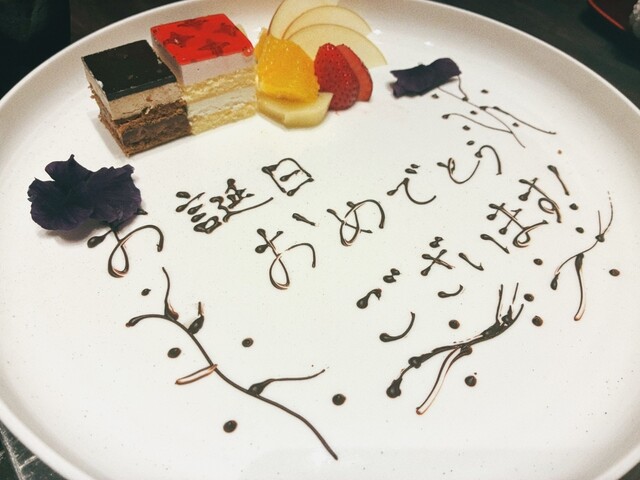 お誕日
おめでとう
ございます!